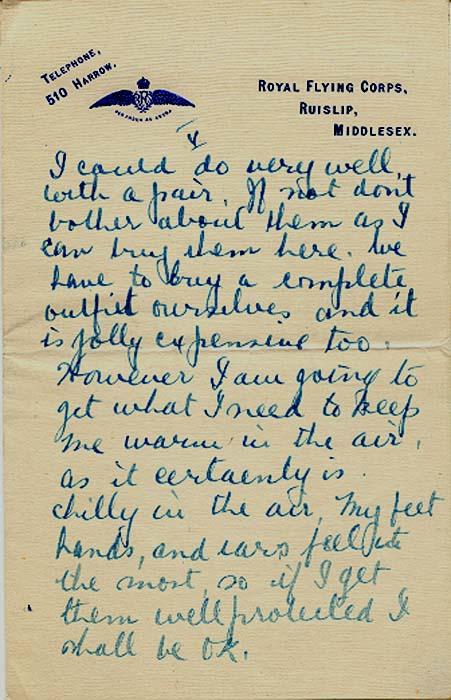 TELEPHONE,
510 HARROW.
ROYAL FLYING CORPS,
RUISLIP,
MIDDLESEX.
PER ARDUA AD ASTRA
4
I could do very well,
with a pair. If not don't
bother about them as I
can buy them here. We
have to buy a complete
outfit ourselves and it
is jolly expensive too.
However I am going to
get what I need to keep
me warm in the air,
as it certaenly is
chilly in the air, My feet
hands, and ears feel it
the most, so if I get
them well protected I
shall be OK.